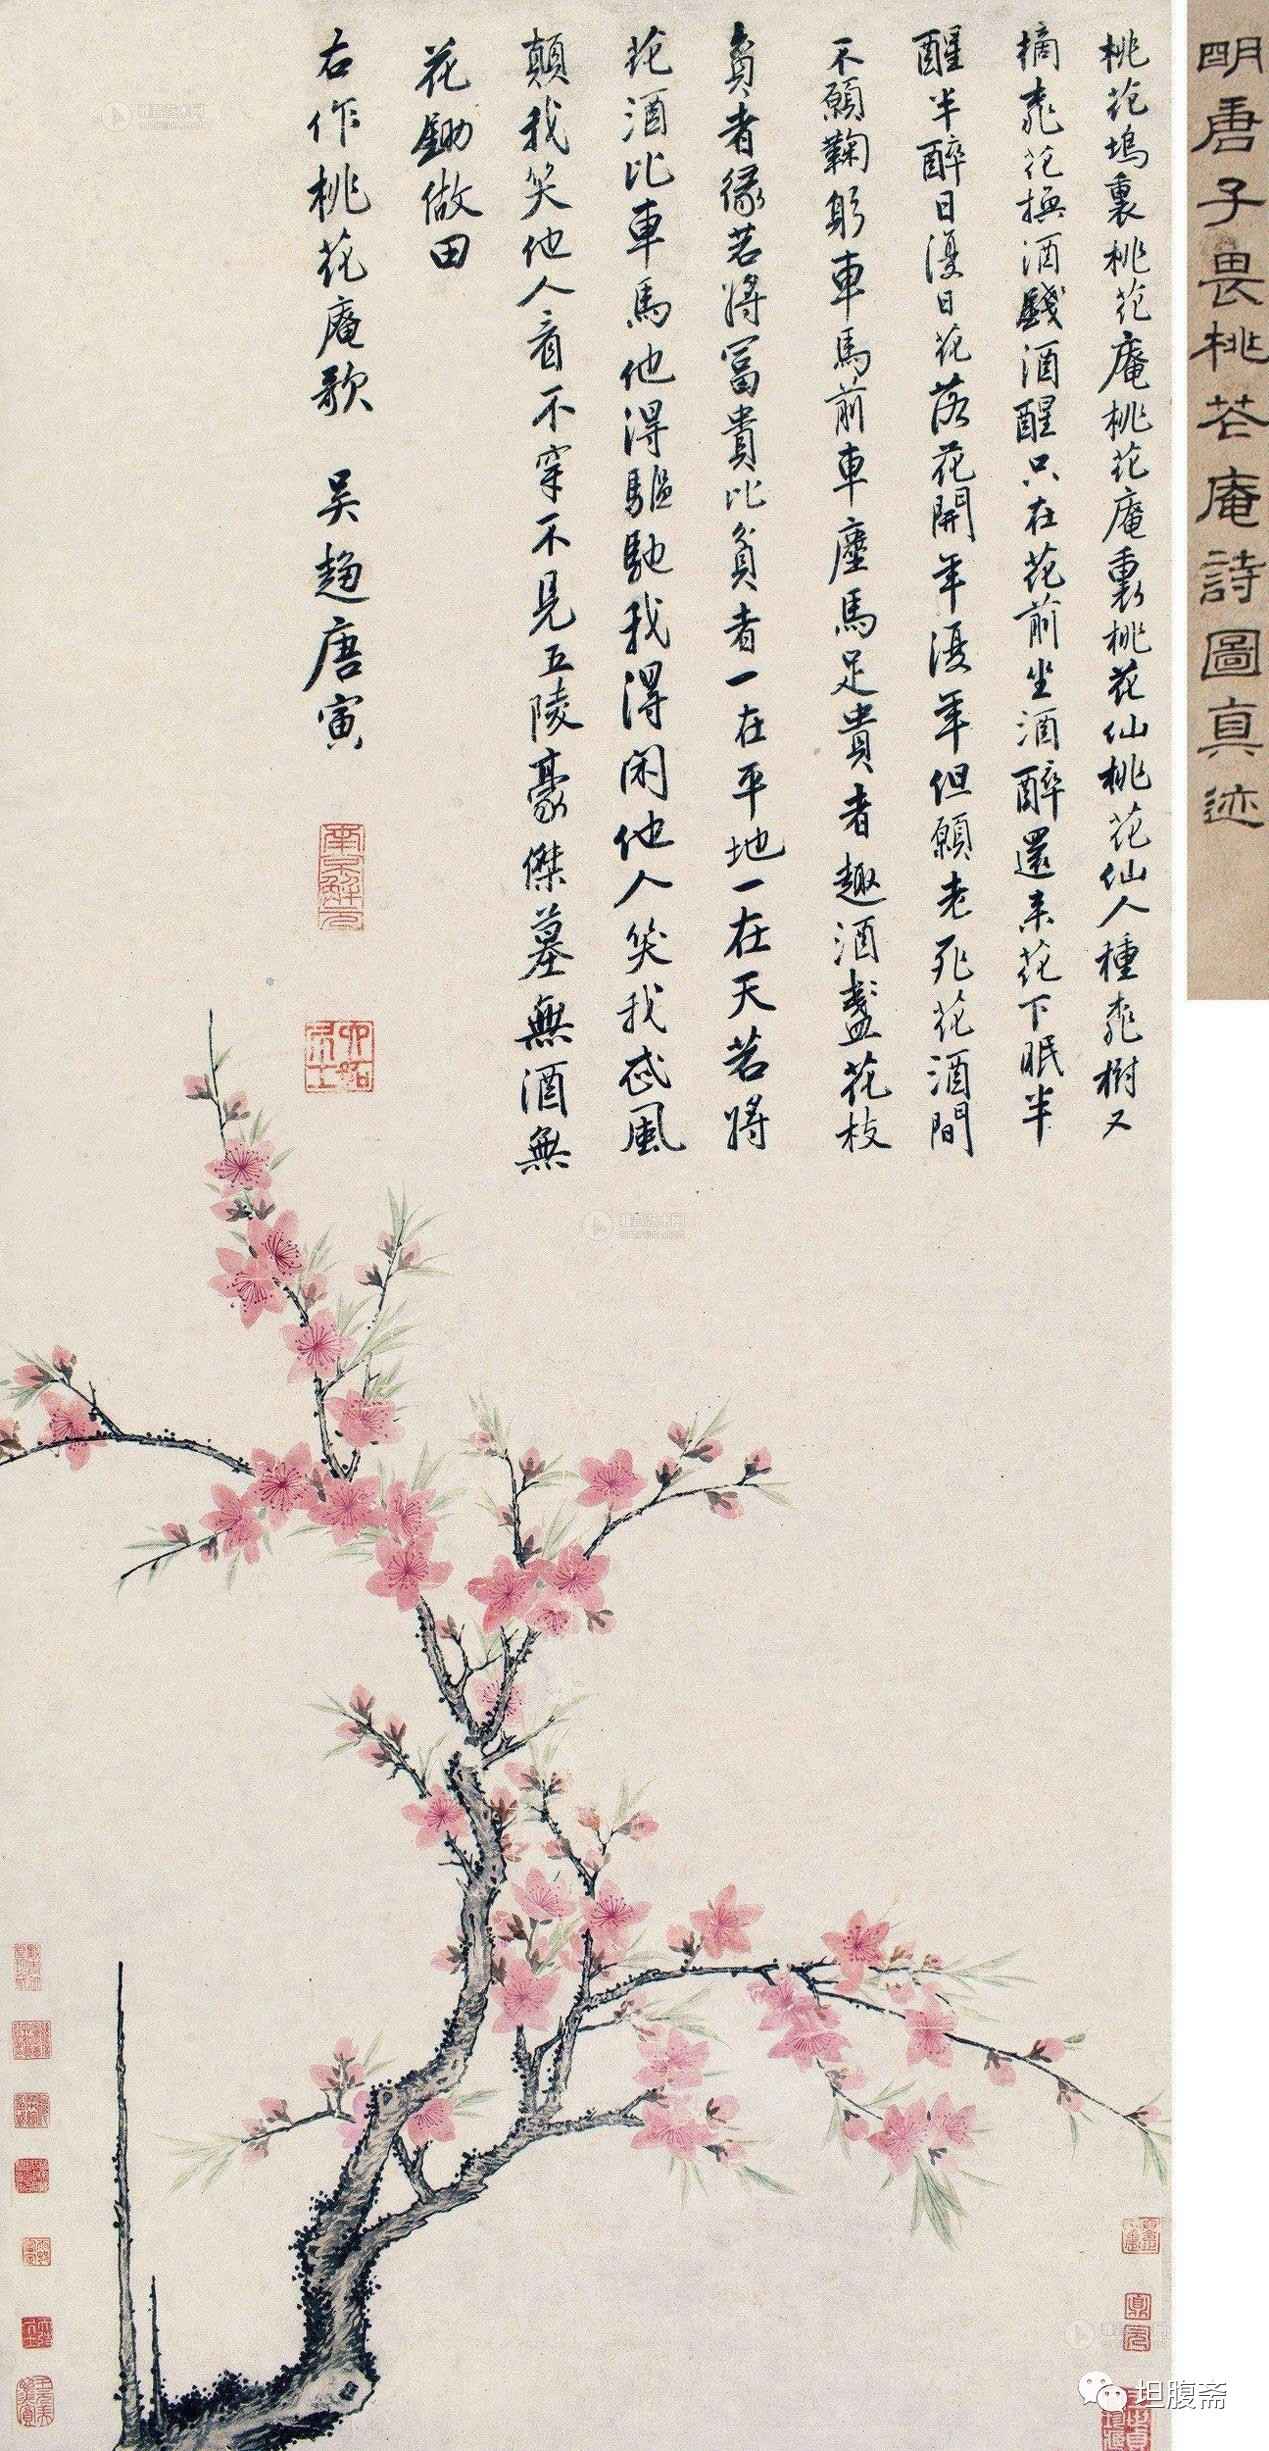 明唐子畏桃花庵詩圖真迹
桃花塢裏桃花庵桃花庵裏桃花仙桃花仙人種桃樹又
摘桃花換酒錢酒醒只在花前坐酒醉還来花下眠半
醒半醉日復日花落花開年復年但願老死花酒間
不願鞠躬車馬前車塵馬足貴者趣酒盞花枝
貧者緣若將富貴比貧者一在平地一在天若將
花酒比車馬他得驅馳我得闲他人笑我忒風
顛我笑他人看不穿不見五陵豪傑墓無酒無
花鋤做田
右作桃花庵歌 吴趨唐寅
南京解元
六如居士
坦腹斋